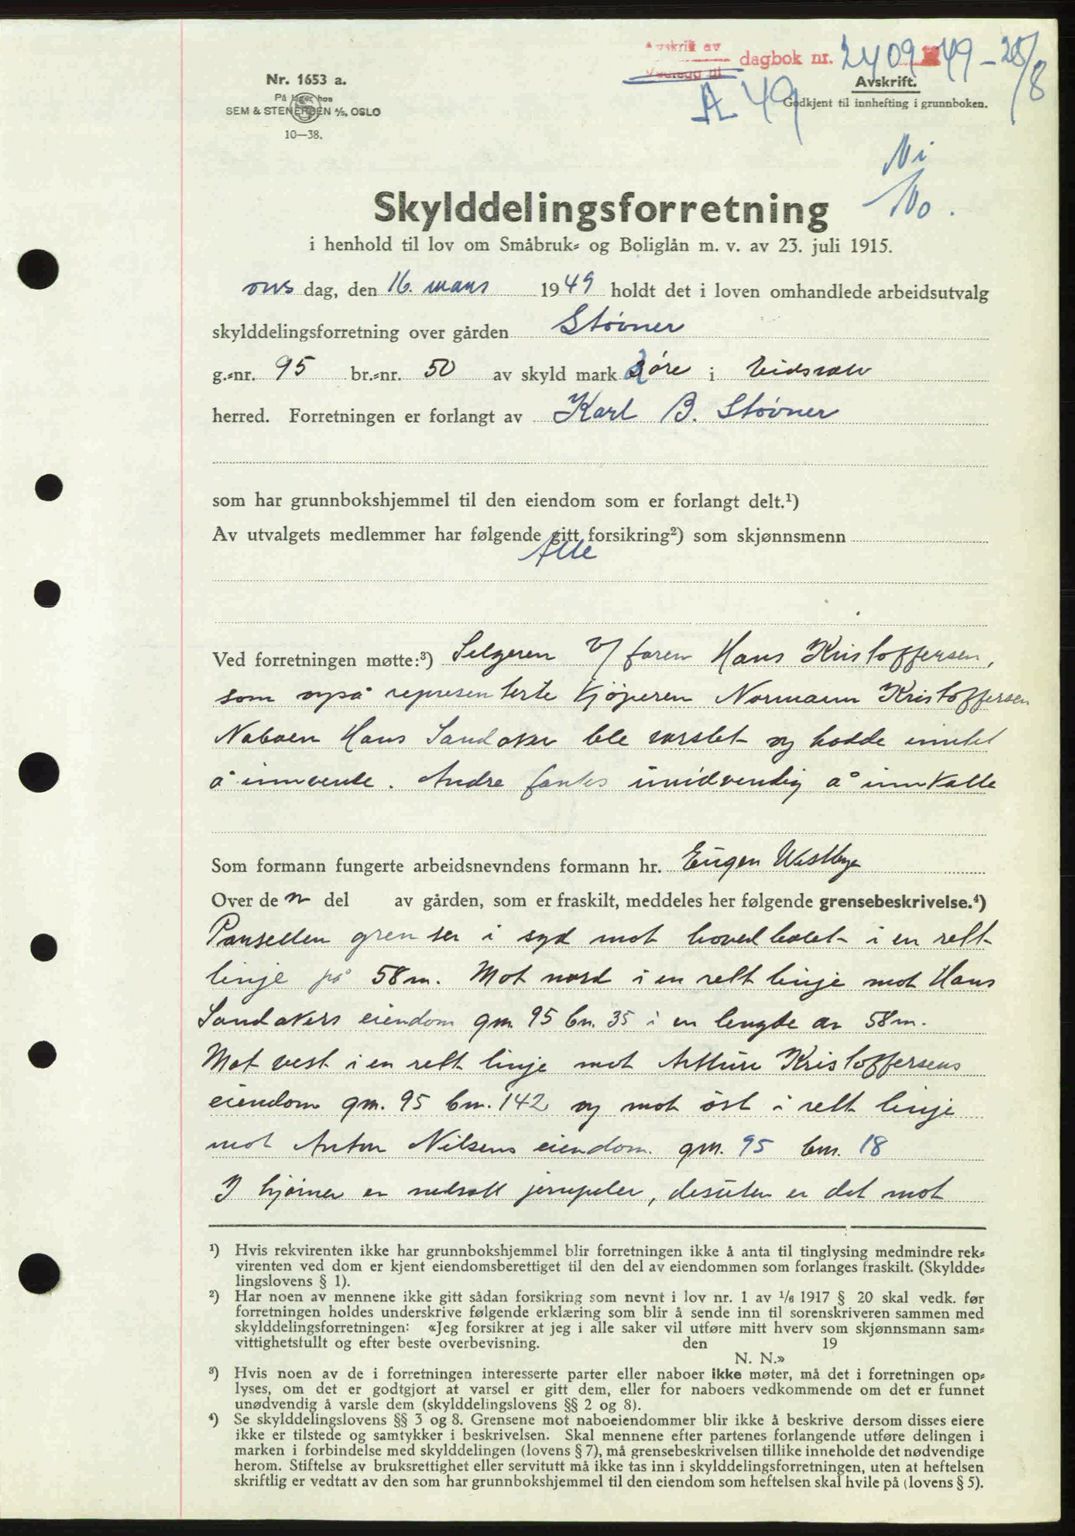 Avskrift av
Vedlegg til dagbok nr. 2409 49-25/8
A 49
Avskrift.
Godkjent til innhefting i grunnboken.
Nr. 1653 a.
På lager hos
SEM & STENERSEN A/S, OSLO
10—38.
Ni
No.
Skylddelingsforretning
i henhold til lov om Småbruk- og Boliglån m. v. av 23. juli 1915.
ons dag, den 16. mars 1949 holdt det i loven omhandlede arbeidsutvalg
skylddelingsforretning over gården Støvner
g.-nr. 95 br.-nr. 50 av skyld mark øre i Eidsvoll
herred. Forretningen er forlangt av Karl B. Støvner
som har grunnbokshjemmel til den eiendom som er forlangt delt.¹)
Av utvalgets medlemmer har følgende gitt forsikring²) som skjønnsmenn
Alle
Ved forretningen møtte:³) Selgeren v/ faren Hans Kristoffersen,
som også representerte kjøperen Normann Kristoffersen
Naboen Hans Sandaker ble varslet og hadde inntet
å innvende. Andre fantes unødvendig å innkalle
Som formann fungerte arbeidsnevndens formann hr. Eugen Westbye
Over den del av gården, som er fraskilt, meddeles her følgende grensebeskrivelse.⁴)
Parsellen grenser i syd mot hovedbølet i en rett
linje på 58m. Mot nord i en rett linje mot Hans
Sandakers eiendom gnr. 95 bn. 35 i en lengde av 58m.
Mot vest i en rett linje mot Arthur Kristoffersens
eiendom gnr. 95 bnr. 142 og mot øst i rett linje
mot Anton Nilsens eiendom. gnr. 95 bnr. 18
I hjørner er nedsatt jernpeler, desuten er det mot
¹) Hvis rekvirenten ikke har grunnbokshjemmel blir forretningen ikke å anta til tinglysing medmindre rek-
virenten ved dom er kjent eiendomsberettiget til den del av eiendommen som forlanges fraskilt. (Skyldde-
lingslovens § 1).
²) Har noen av mennene ikke gitt sådan forsikring som nevnt i lov nr. 1 av 1/6 1917 § 20 skal vedk. før
forretningen holdes underskrive følgende erklæring som blir å sende inn til sorenskriveren sammen med
skylddelingsforretningen: «Jeg forsikrer at jeg i alle saker vil utføre mitt hverv som skjønnsmann sam-
vittighetsfullt og efter beste overbevisning. den 19
N. N.»
³) Hvis noen av de i forretningen interesserte parter eller naboer ikke møter, må det i forretningen op-
lyses, om det er godtgjort at varsel er gitt dem, eller for naboers vedkommende om det er funnet
unødvendig å varsle dem (skylddelingslovens §§ 2 og 8).
⁴) Se skylddelingslovens §§ 3 og 8. Grensene mot naboeiendommer blir ikke å beskrive dersom disses eiere
ikke er tilstede og samtykker i beskrivelsen. Skal mennene efter partenes forlangende utføre delingen i
marken i forbindelse med skylddelingen (lovens § 7), må grensebeskrivelsen tillike inneholde det nødvendige
herom. Stiftelse av bruksrettighet eller servitutt må ikke tas inn i skylddelingsforretningen, uten at heftelsen
skriftlig er vedtatt av den som har grunnbokshjemmel til den eiendom som heftelsen skal hvile på (lovens § 5).